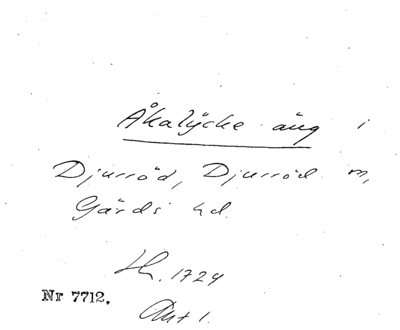 Åkalycke äng i
Djurröd, Djurröd sn,
Gärds hd.
1724
Nr 7712.
Akt 1.